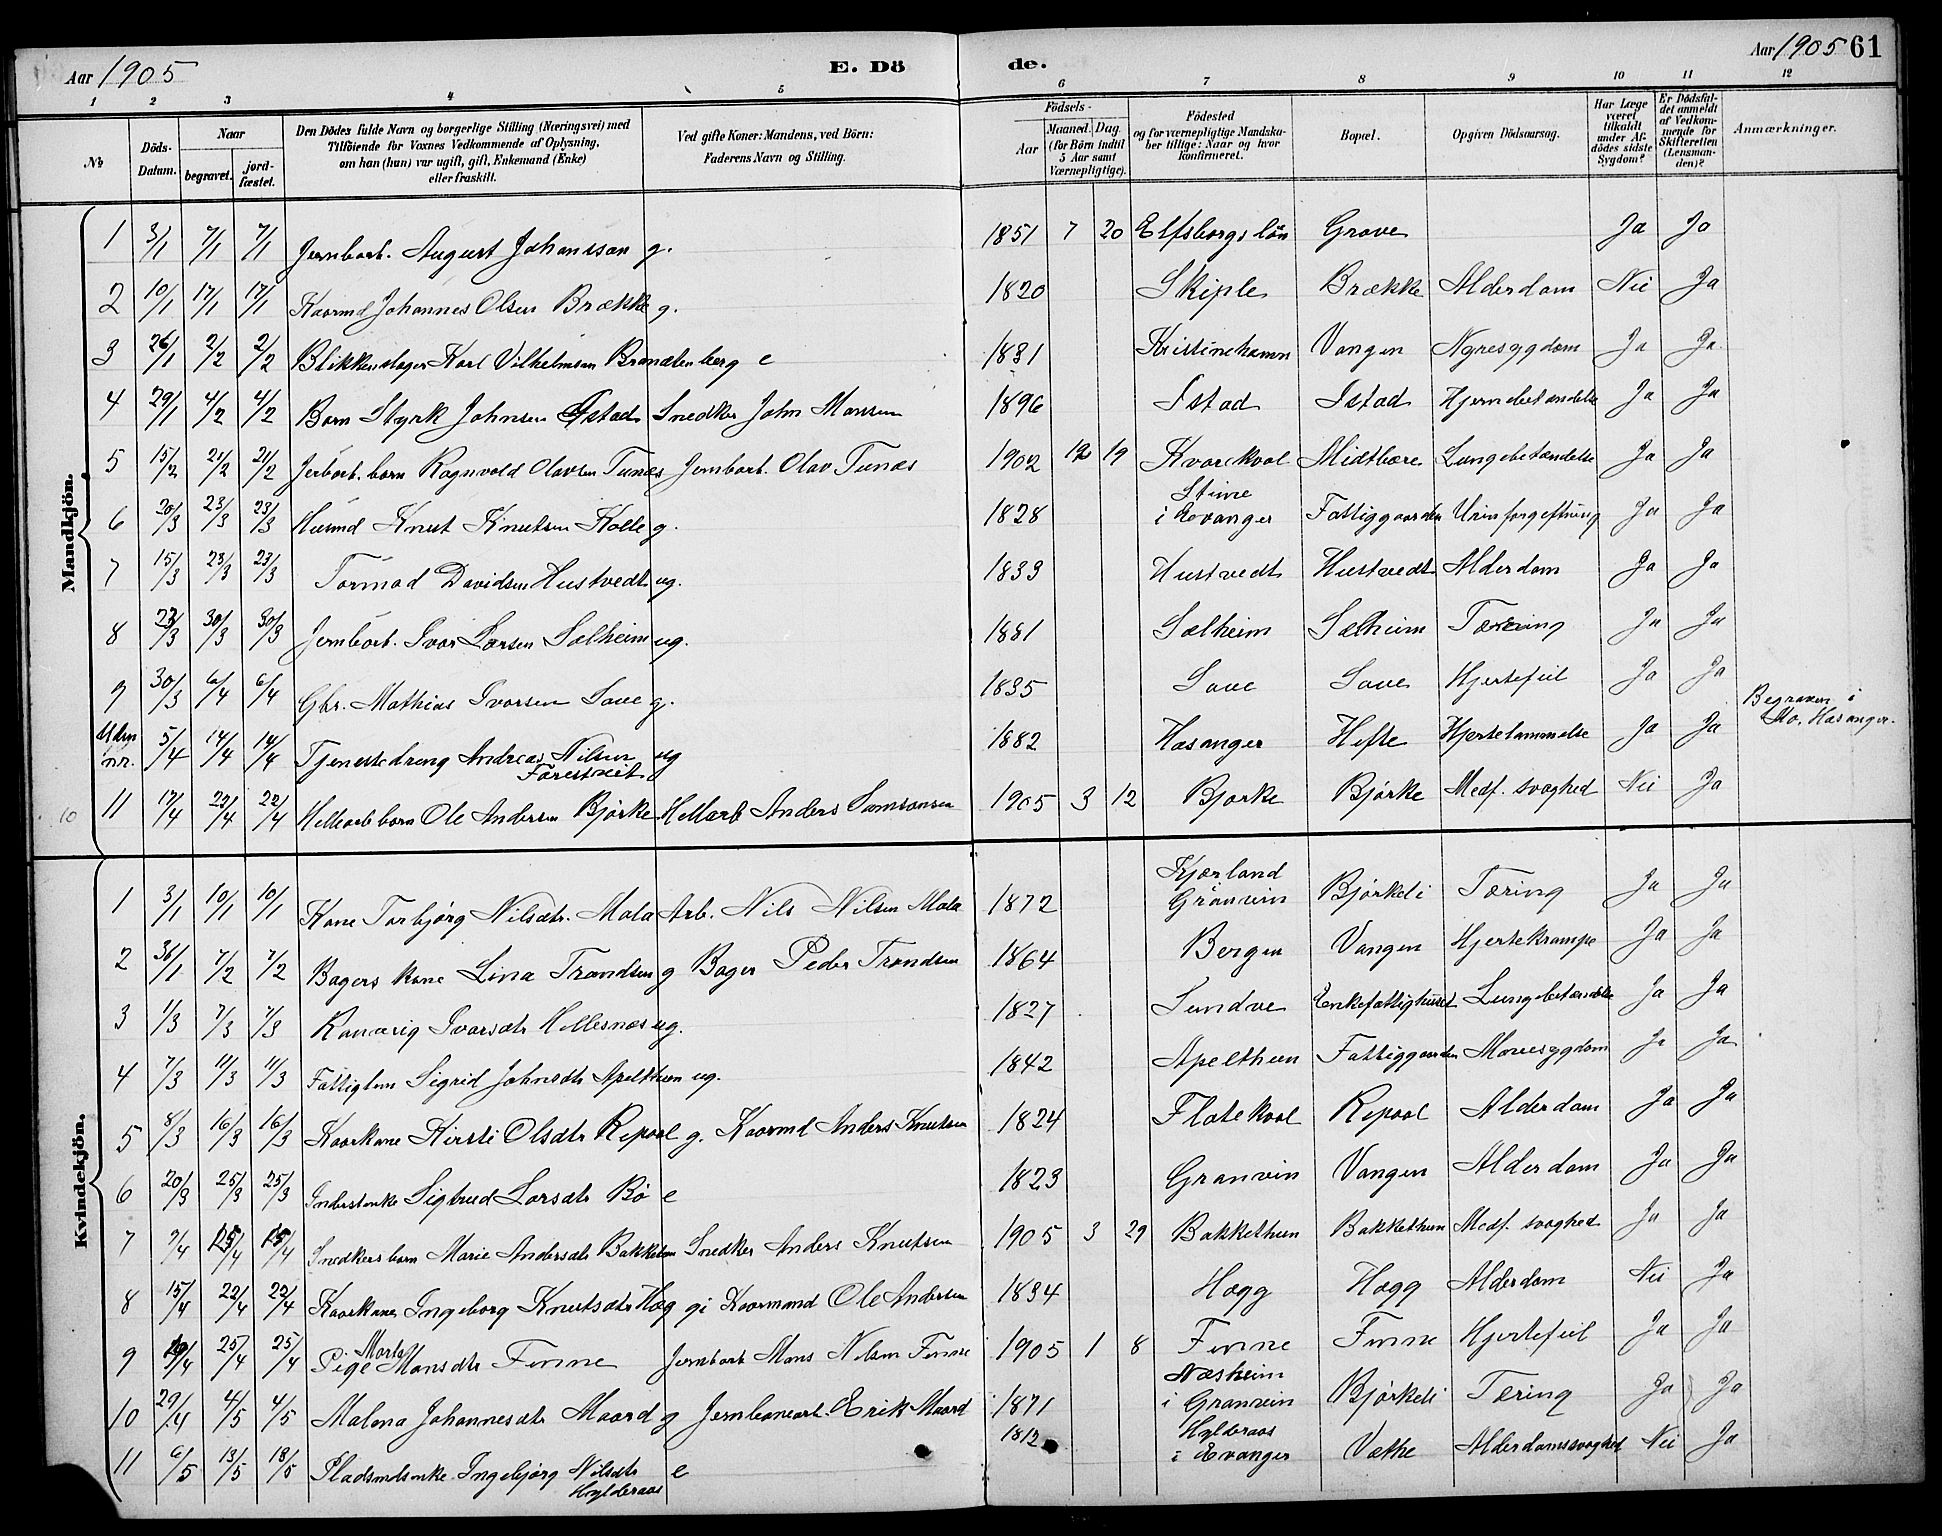 Aar 1905 E. Dö de. Aar 1905 61
1 2 3 4 5 6 7 8 9 10 11 12
№ Döds-Datum. Naar begravet. jord-fæstet. Den Dödes fulde Navn og borgerlige Stilling (Næringsvei) med Tilföiende for Voxnes Vedkommende af Oplysning, om han (hun) var ugift, gift, Enkemand (Enke) eller fraskilt. Ved gifte Koner: Mandens, ved Börn: Faderens Navn og Stilling. Födsels- Aar Maaned. Dag. (for Börn indtil 5 Aar samt Værnepligtige). Födested og for værnepligtige Mandskaber tillige: Naar og hvor konfirmeret. Bopæl. Opgiven Dödsaarsag. Har Læge været tilkaldt under Afdödes sidste Sygdom? Er Dödsfaldet anmeldt af Vedkommende for Skifteretten (Lensmanden)? Anmærkninger.
Mandkjön.
1 3/1 7/1 7/1 Jernbarb. August Johansson g. 1851 7 20 Elfsborgs län Grove Ja Ja
2 10/1 17/1 17/1 Kaarmd Johannes Olsen Brække g. 1820 Skiple Brække Alderdom Nei Ja
3 26/1 2/2 2/2 Blikkenslager Karl Vilhelmsen Brandenberg e 1831 Kristinehamn Vangen Nyresygdom Ja Ja
4 29/1 4/2 4/2 Barn Styrk Johnsen Istad Snedker John Monsen 1896 Istad Istad Hjernebetændelse Ja Ja
5 15/2 21/2 21/2 Jerbarb. barn Ragnvald Olavsen Tunæs Jernbarb. Olav Tunæs 1902 12 19 Kvarekval Midtbære Lungebetændelse Ja Ja
6 20/3 23/3 23/3 Husmd Knut Knutsen Kolle g. 1828 Stime i Evanger Fattiggaarden Urinforgeftning Ja Ja
7 15/3 23/3 23/3 Tormod Davidsen Hustvedt ug. 1833 Hustvedt Hustvedt Alderdom Ja Ja
8 23/3 30/3 30/3 Jernbarb. Ivar Larsen Sælheim ug. 1881 Sælheim Sælheim Tæring Ja Ja
9 30/3 6/4 6/4 Gbr. Mathias Ivarsen Saue g. 1835 Saue Saue Hjertefeil Ja Ja
Uden nr. 5/4 14/4 14/4 Tjenestedreng Andreas Nilsen Forestveit ug 1882 Hasanger Hefte Hjertelammelse Ja Ja Begraven i Mo, Hasanger.
10 11 17/4 22/4 22/4 Hellearb barn Ole Andersen Bjørke Hellarb Anders Samsonsen 1905 3 12 Bjørke Bjørke Medf. svaghed Nei Ja
Kvindekjön.
1 3/1 10/1 10/1 Kone Torbjørg Nilsdtr. Mala Arb. Nils Nilsen Mala 1872 Kjærland Granvin Bjørkeli Tæring Ja Ja
2 31/1 7/2 7/2 Bagers kone Lina Trondsen g Bager Peder Trondsen 1864 Bergen Vangen Hjertekrampe Ja Ja
3 1/3 7/3 7/3 Ranveig Ivarsdtr Hellesnæs ug. 1827 Sundve Enkefattighuset Lungebetændelse Ja Ja
4 7/3 11/3 11/3 Fattiglem Sigrid Johnsdtr Apelthun ug. 1842 Apelthun Fattiggaarden Mavesygdom Ja Ja
5 8/3 16/3 16/3 Kaarkone Kirsti Olsdtr Repaal g. Kaarmd Anders Knutsen 1824 Flatekval Repaal Alderdom Ja Ja
6 20/3 25/3 25/3 Inderstenke Sigtrud Larsdtr Bø e 1823 Granvin Vangen Alderdom Ja Ja
7 9/4 15/4 15/4 Snedkers barn Marie Andersdtr Bakkethun Snedker Anders Knutsen 1905 3 29 Bakkethun Bakkethun Medf. svaghed Ja Ja
8 15/4 22/4 22/4 Kaarkone Ingeborg Knutsdtr Hæg gi Kaarmand Ole Andersen 1834 Hægg Hægg Alderdom Nei Ja
9 19/4 25/4 25/4 Pige Marta Monsdtr Finne Jernbarb Mons Nilsen Finne 1905 1 8 Finne Finne Hjertefeil Ja Ja
10 29/4 4/5 4/5 Malena Johannesdtr Maard g Jernbanearb. Erik Maard 1871 Næsheim i Granvin Bjørkeli Tæring Ja Ja
11 6/5 13/5 13/5 Pladsmdsenke Ingebjørg Nilsdtr Hylderaas e 1812 Hylderaas i Evanger Væthe Alderdomssvaghed Nei Ja